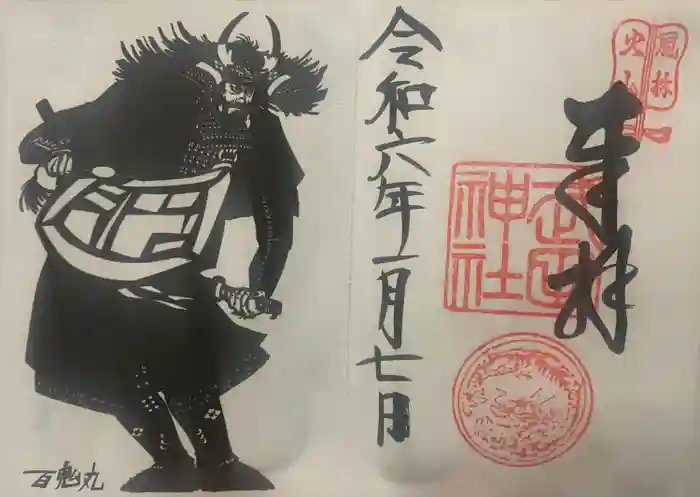 奉拝
風林火山
武田神社
令和六年一月七日
百鬼丸